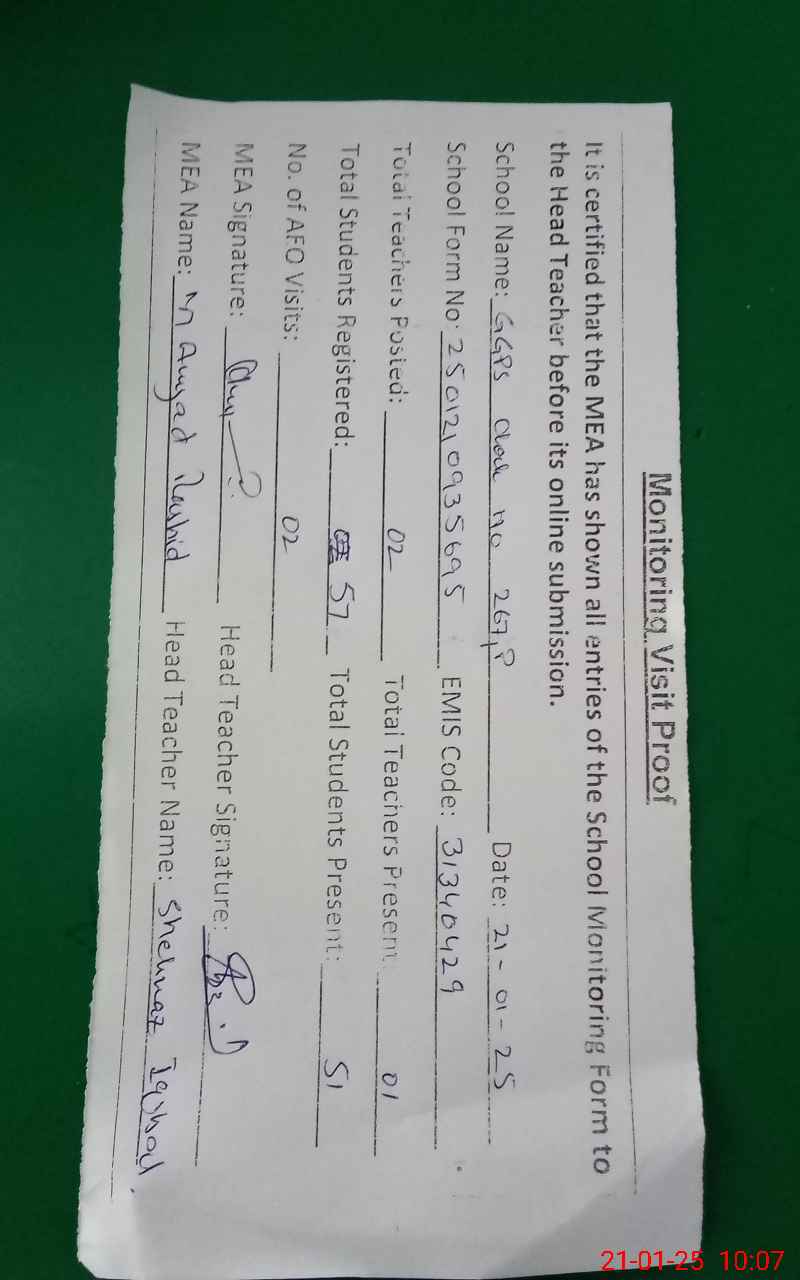 Monitoring Visit Proof
It is certified that the MEA has shown all entries of the School Monitoring Form to
the Head Teacher before its online submission.
School Name: GGPS Chak no 267,P Date: 21-01-25
School Form No: 2501210935695 EMIS Code: 31340429
Total Teachers Posted: 02 Total Teachers Present: 01
Total Students Registered: 57 Total Students Present: 51
No. of AEO Visits: 02
MEA Signature: Head Teacher Signature:
MEA Name: M Amjad Rashid Head Teacher Name: Shehnaz Irshad
21-01-25 10:07